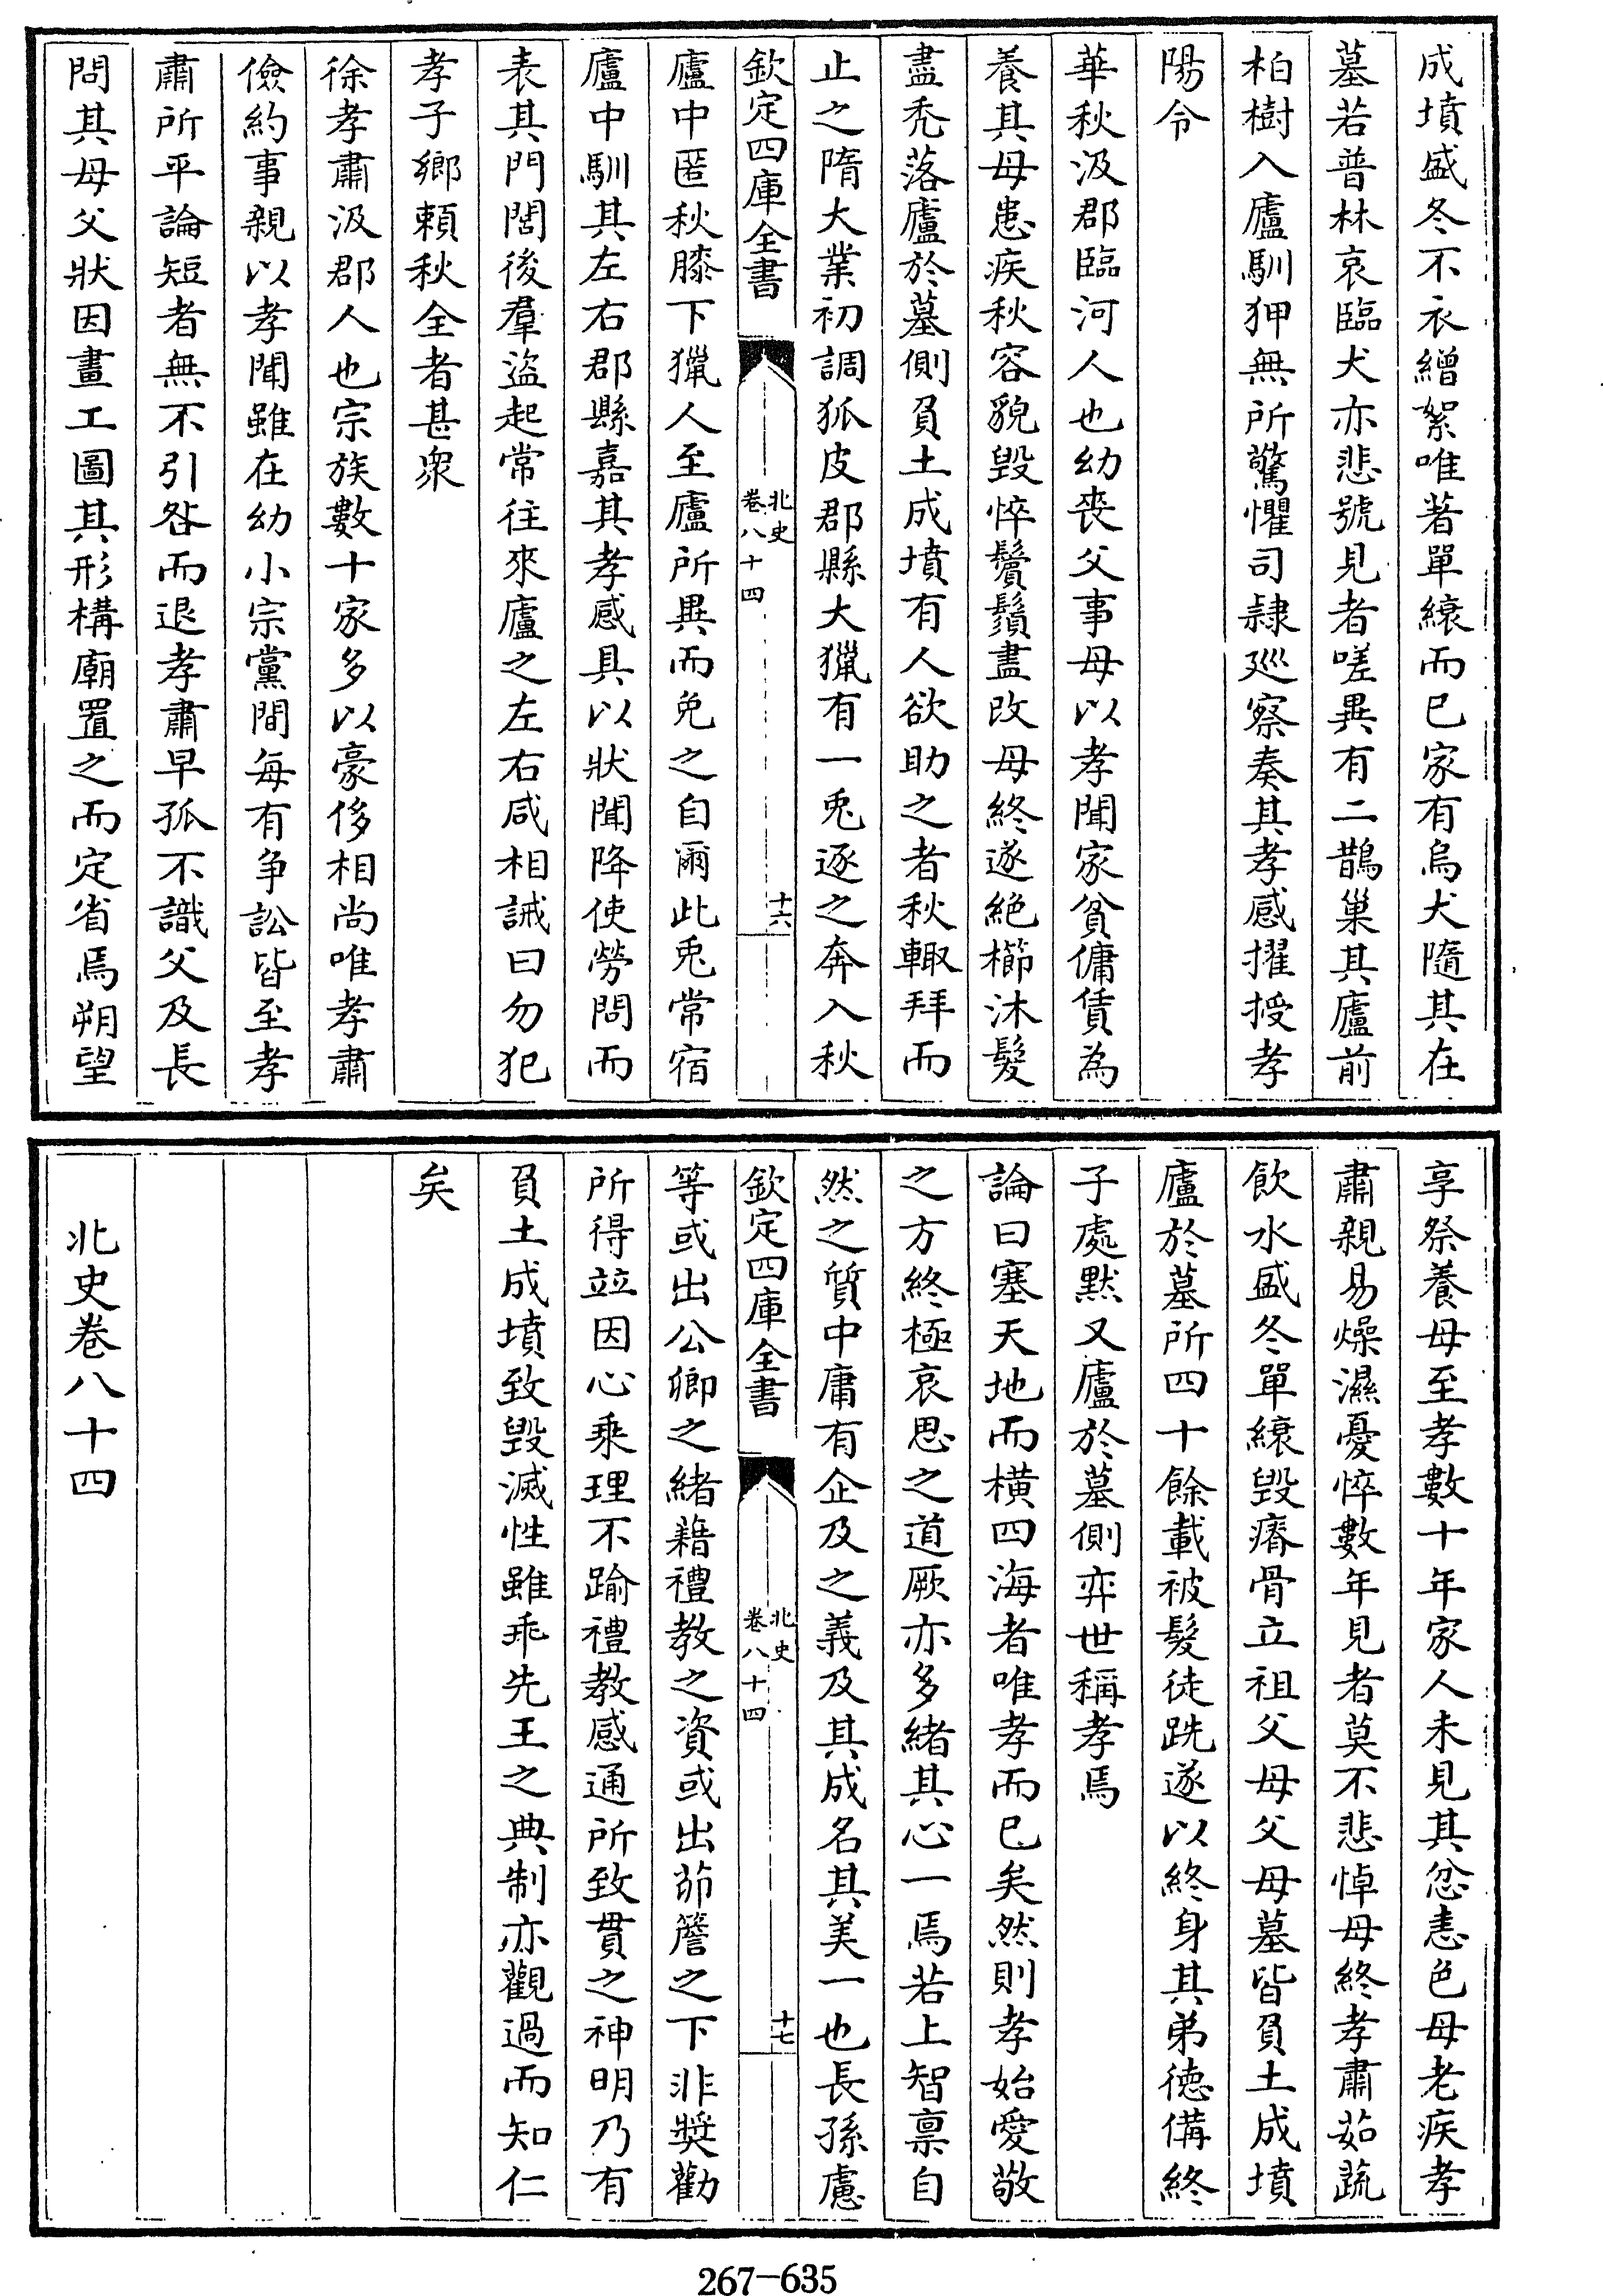 成墳盛冬不衣繒絮唯著單縗而已家有烏犬隨其在
墓若普林哀臨犬亦悲號見者嗟異有二鵲巢其廬前
柏樹入廬馴狎無所驚懼司隷廵察奏其孝感擢授孝
陽令
華秋汲郡臨河人也幼喪父事母以孝聞家貧傭賃為
養其母患疾秋容貌毀悴鬢鬚盡改母終遂絶櫛沐髮
盡禿落廬於墓側負土成墳有人欲助之者秋輙拜而
止之隋大業初調狐皮郡縣大獵有一兎逐之奔入秋
欽定四庫全書
北史
卷八十四
十六
廬中匿秋膝下獵人至廬所異而免之自爾此兎常宿
廬中馴其左右郡縣嘉其孝感具以狀聞降使勞問而
表其門閭後羣盜起常往來廬之左右咸相誡曰勿犯
孝子鄉頼秋全者甚衆
徐孝肅汲郡人也宗族數十家多以豪侈相尚唯孝肅
儉約事親以孝聞雖在幼小宗黨間每有争訟皆至孝
肅所平論短者無不引咎而退孝肅早孤不識父及長
問其母父狀因畫工圖其形構廟置之而定省焉朔望
享祭養母至孝數十年家人未見其忿恚色母老疾孝
肅親易燥濕憂悴數年見者莫不悲悼母終孝肅茹蔬
飲水盛冬單縗毀瘠骨立祖父母父母墓皆負土成墳
廬於墓所四十餘載被髮徒跣遂以終身其弟德備終
子處默又廬於墓側弈世稱孝焉
論曰塞天地而横四海者唯孝而已矣然則孝始愛敬
之方終極哀思之道厥亦多緒其心一焉若上智禀自
然之質中庸有企及之義及其成名其美一也長孫慮
欽定四庫全書
北史
卷八十四
十七
等或出公卿之緒藉禮教之資或出茆簷之下非奬勸
所得竝因心乘理不踰禮教感通所致貫之神明乃有
負土成墳致毀滅性雖乖先王之典制亦觀過而知仁
矣
北史卷八十四
267-635